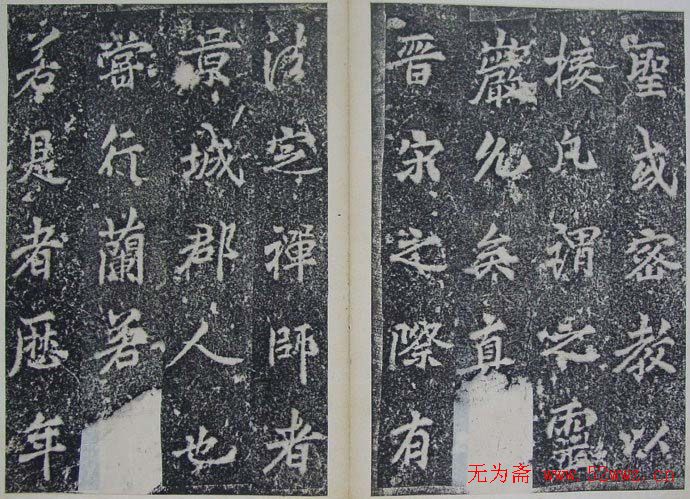 聖或密教以
接凡謂之靈
巖允矣真
晋宋之際有
法定禪師者
景城郡人也
嘗行蘭若
若是者歷年
无为斋 www.52wwz.cn